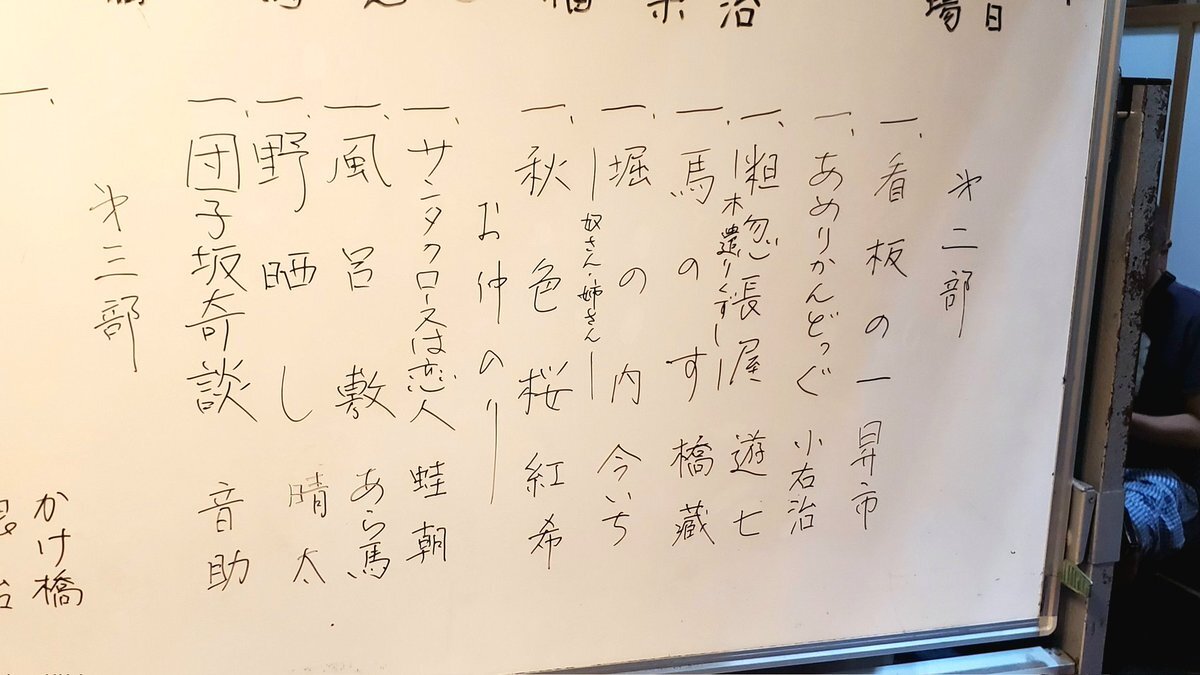 日
場
治
第二部
一、看板の一 昇市
一、あめりかんどっぐ 小右治
一、粗忽長屋 遊七
―木遣りくずし―
一、馬のす 橋蔵
一、堀の内 今いち
―奴さん・姉さん―
一、秋色桜 紅希
お仲のり
一、サンタクロースは恋人 蛙朝
一、風呂敷 あら馬
一、野晒し 晴太
一、団子坂奇談 音助
第三部
一、
かけ橋